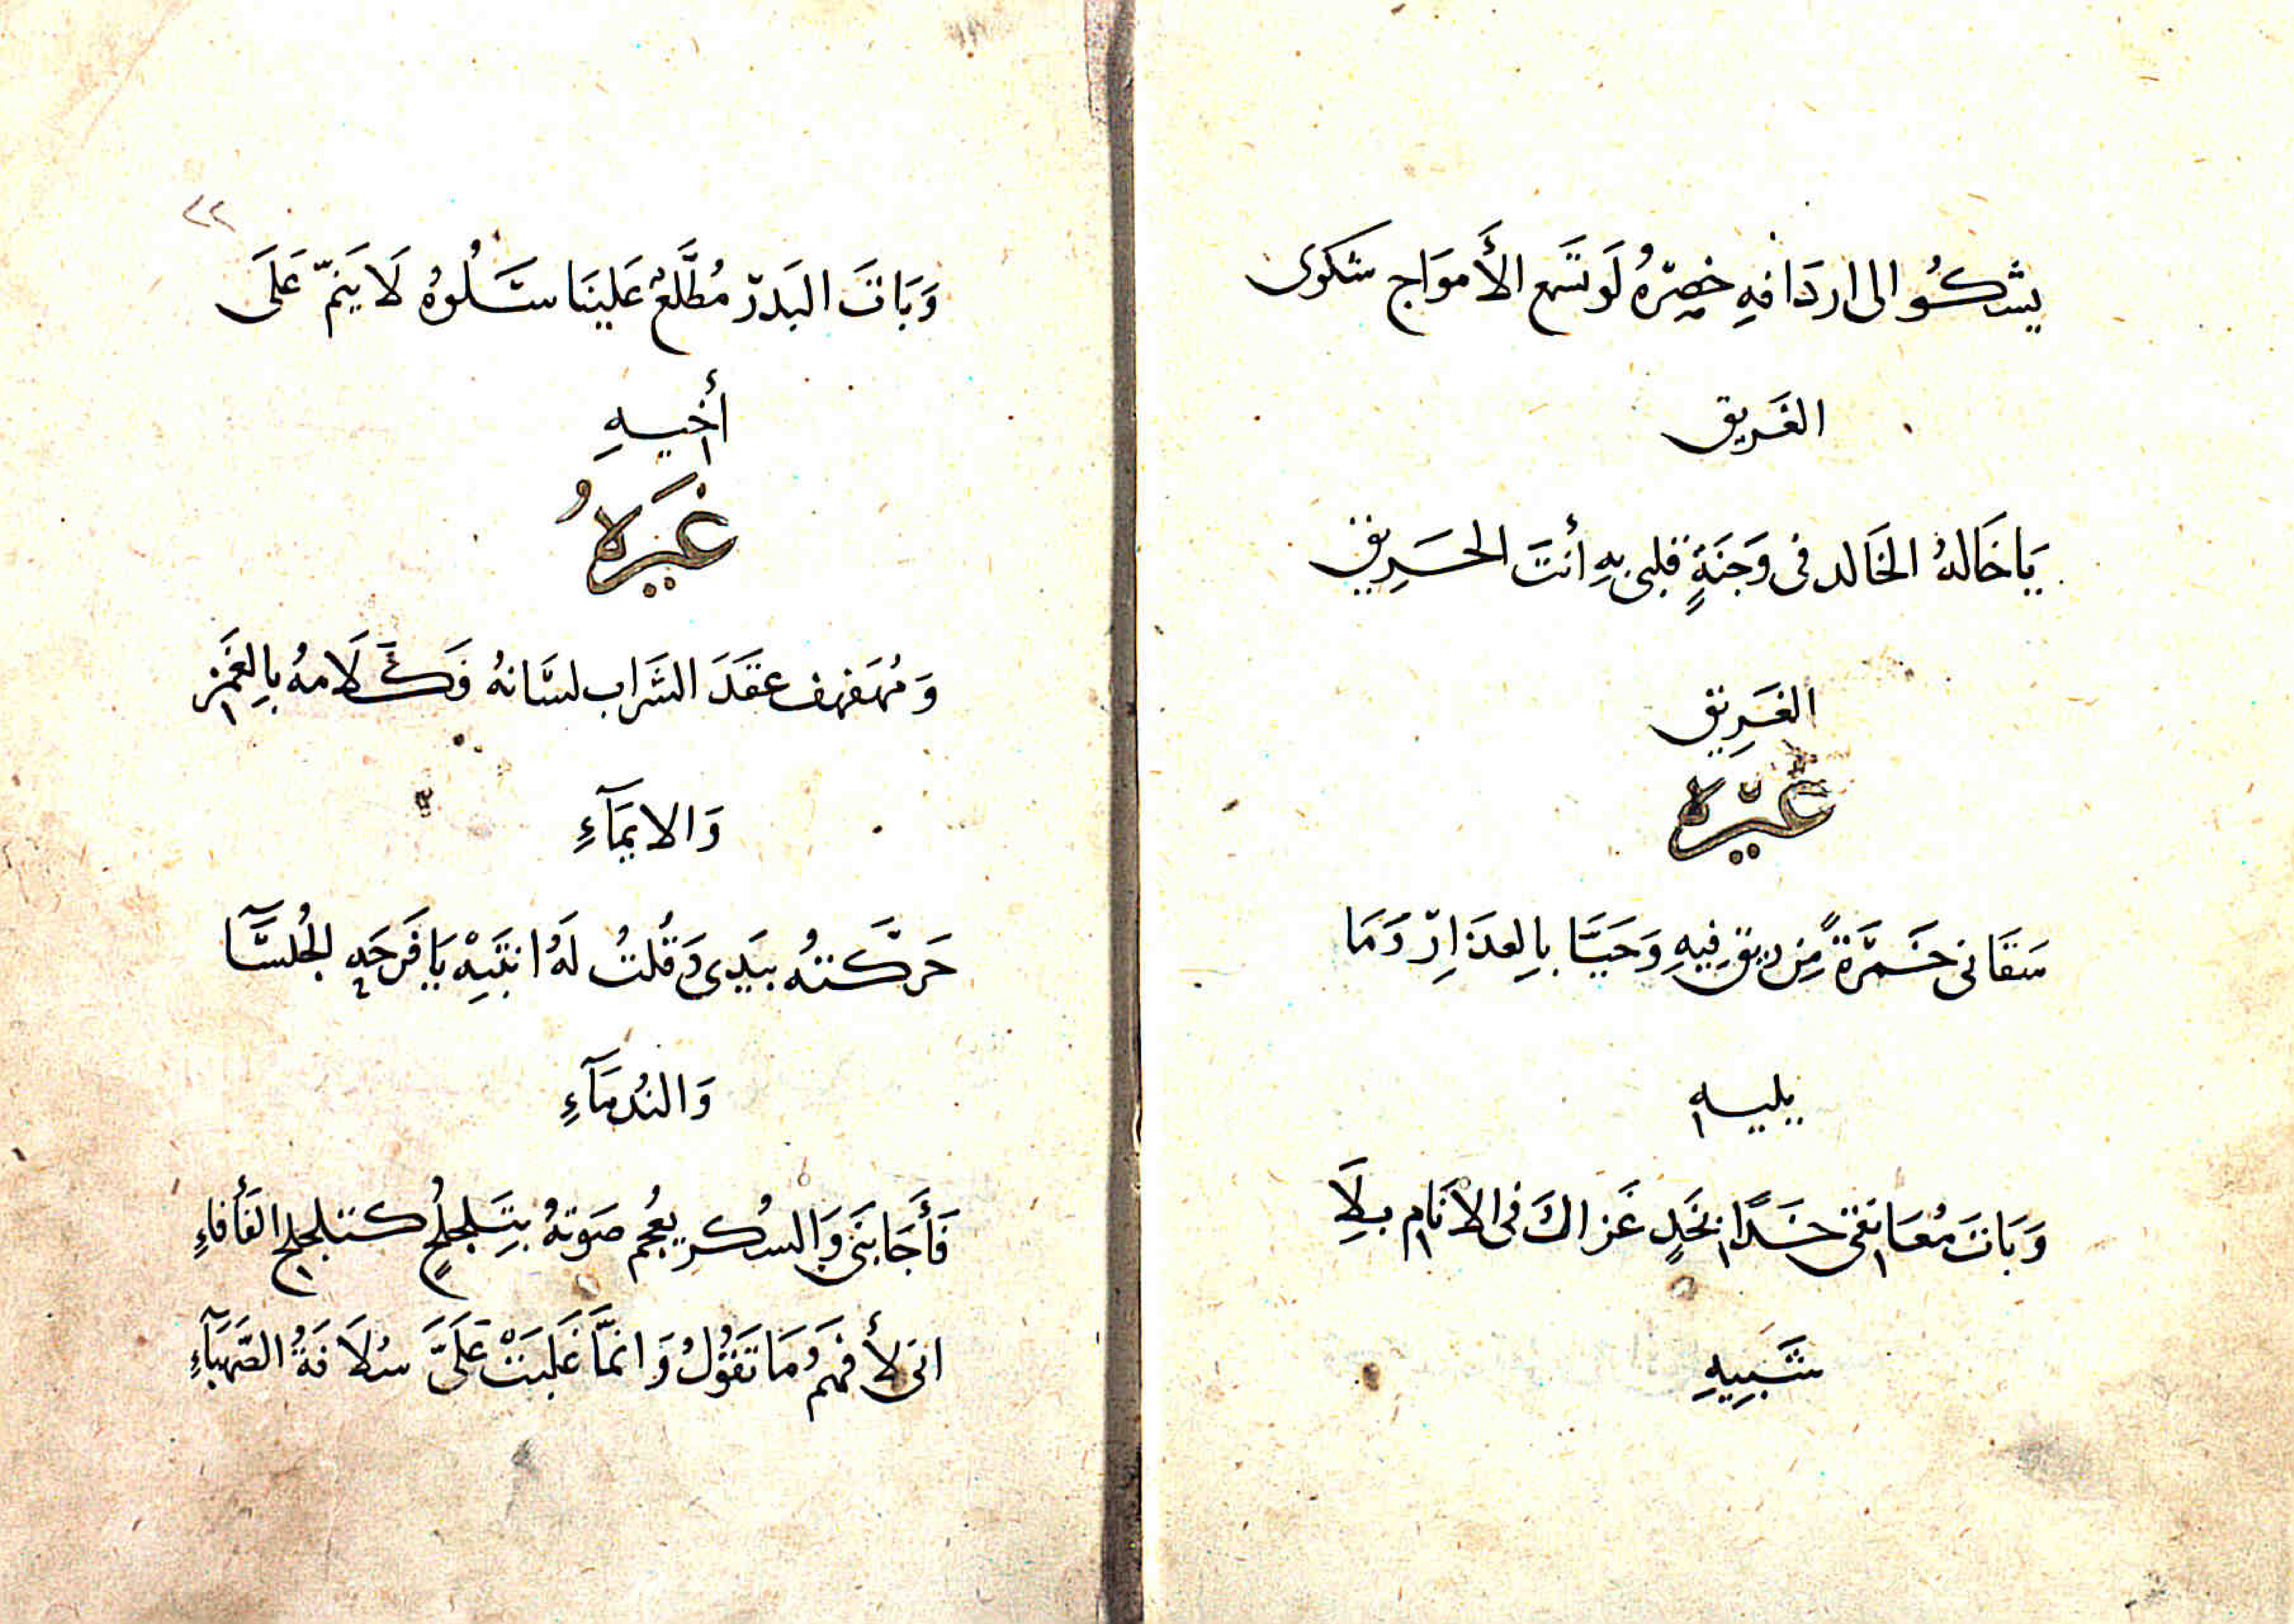 يشكُوا الى اردَافهِ خصرَهُ لَو تَسمع الأَموَاج شكوى
الغَريق
يَاخَالهُ الخَالد فى وَجنَةٍ قلبى بهِ أنتَ الحَرِيق
الغَرِيق
غَيْرَهُ
سَقَانى خَمرَةً مِن رِيقِ فِيهِ وَحَيَّا بِالعذَارِ وَمَا
يليه
وَبَاتَ مُعَانقى خَدًا بخَدٍ غَزالَ فى الانَام بِلَا
شَبِيهِ
٢٢
وَبَاتَ البَدر مُطَّلعٌ عَلينَا سَلُوهُ لَا يَنمّ عَلَى
أَخيهِ
غَيرَهُ
وَمُهَفهف عقَدَ الشَراب لسَانهُ فَكَلَامهُ بِالغَمزِ
وَالايمَآءِ
حَرَّكتهُ بيَدِى وَقُلتُ لَهُ انتَبِهْ يَا فَرحَة الجُلسَآ
وَالنُدمَآءِ
فَأَجَابَنى وَالسُكر يعُجم صَوتهُ بتَلجلُجٍ كتلجلج الفَأفاءِ
انى لأَفهَمُ مَا تَقُولُ وَانمَّا غَلَبَتْ عَلَىَّ سُلَافَةُ الصَهبَآءِ